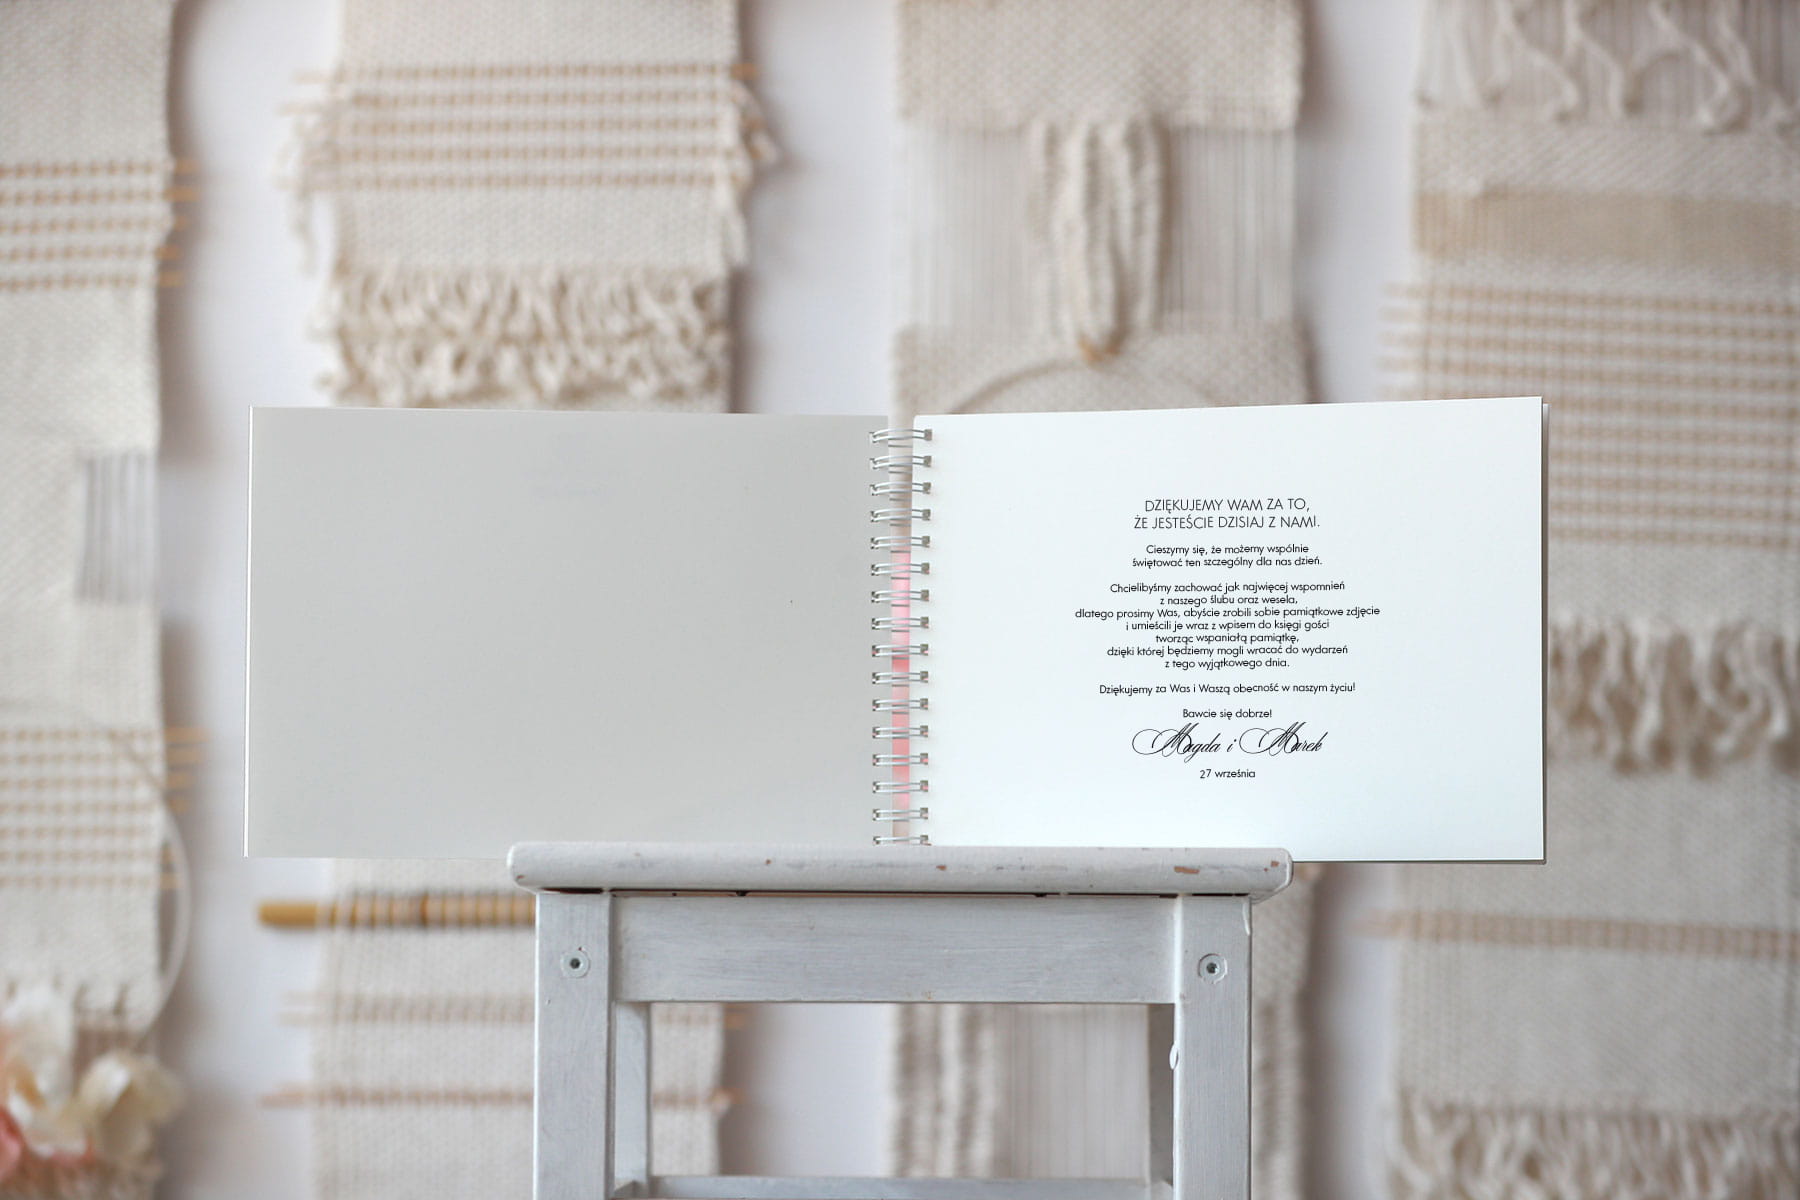 DZIĘKUJEMY WAM ZA TO,
ŻE JESTEŚCIE DZISIAJ Z NAMI.
Cieszymy się, że możemy wspólnie
świętować ten szczególny dla nas dzień.
Chcielibyśmy zachować jak najwięcej wspomnień
z naszego ślubu oraz wesela,
dlatego prosimy Was, abyście zrobili sobie pamiątkowe zdjęcie
i umieścili je wraz z wpisem do księgi gości
tworząc wspaniałą pamiątkę,
dzięki której będziemy mogli wracać do wydarzeń
z tego wyjątkowego dnia.
Dziękujemy za Was i Waszą obecność w naszym życiu!
Bawcie się dobrze!
Magda i Marek
27 września